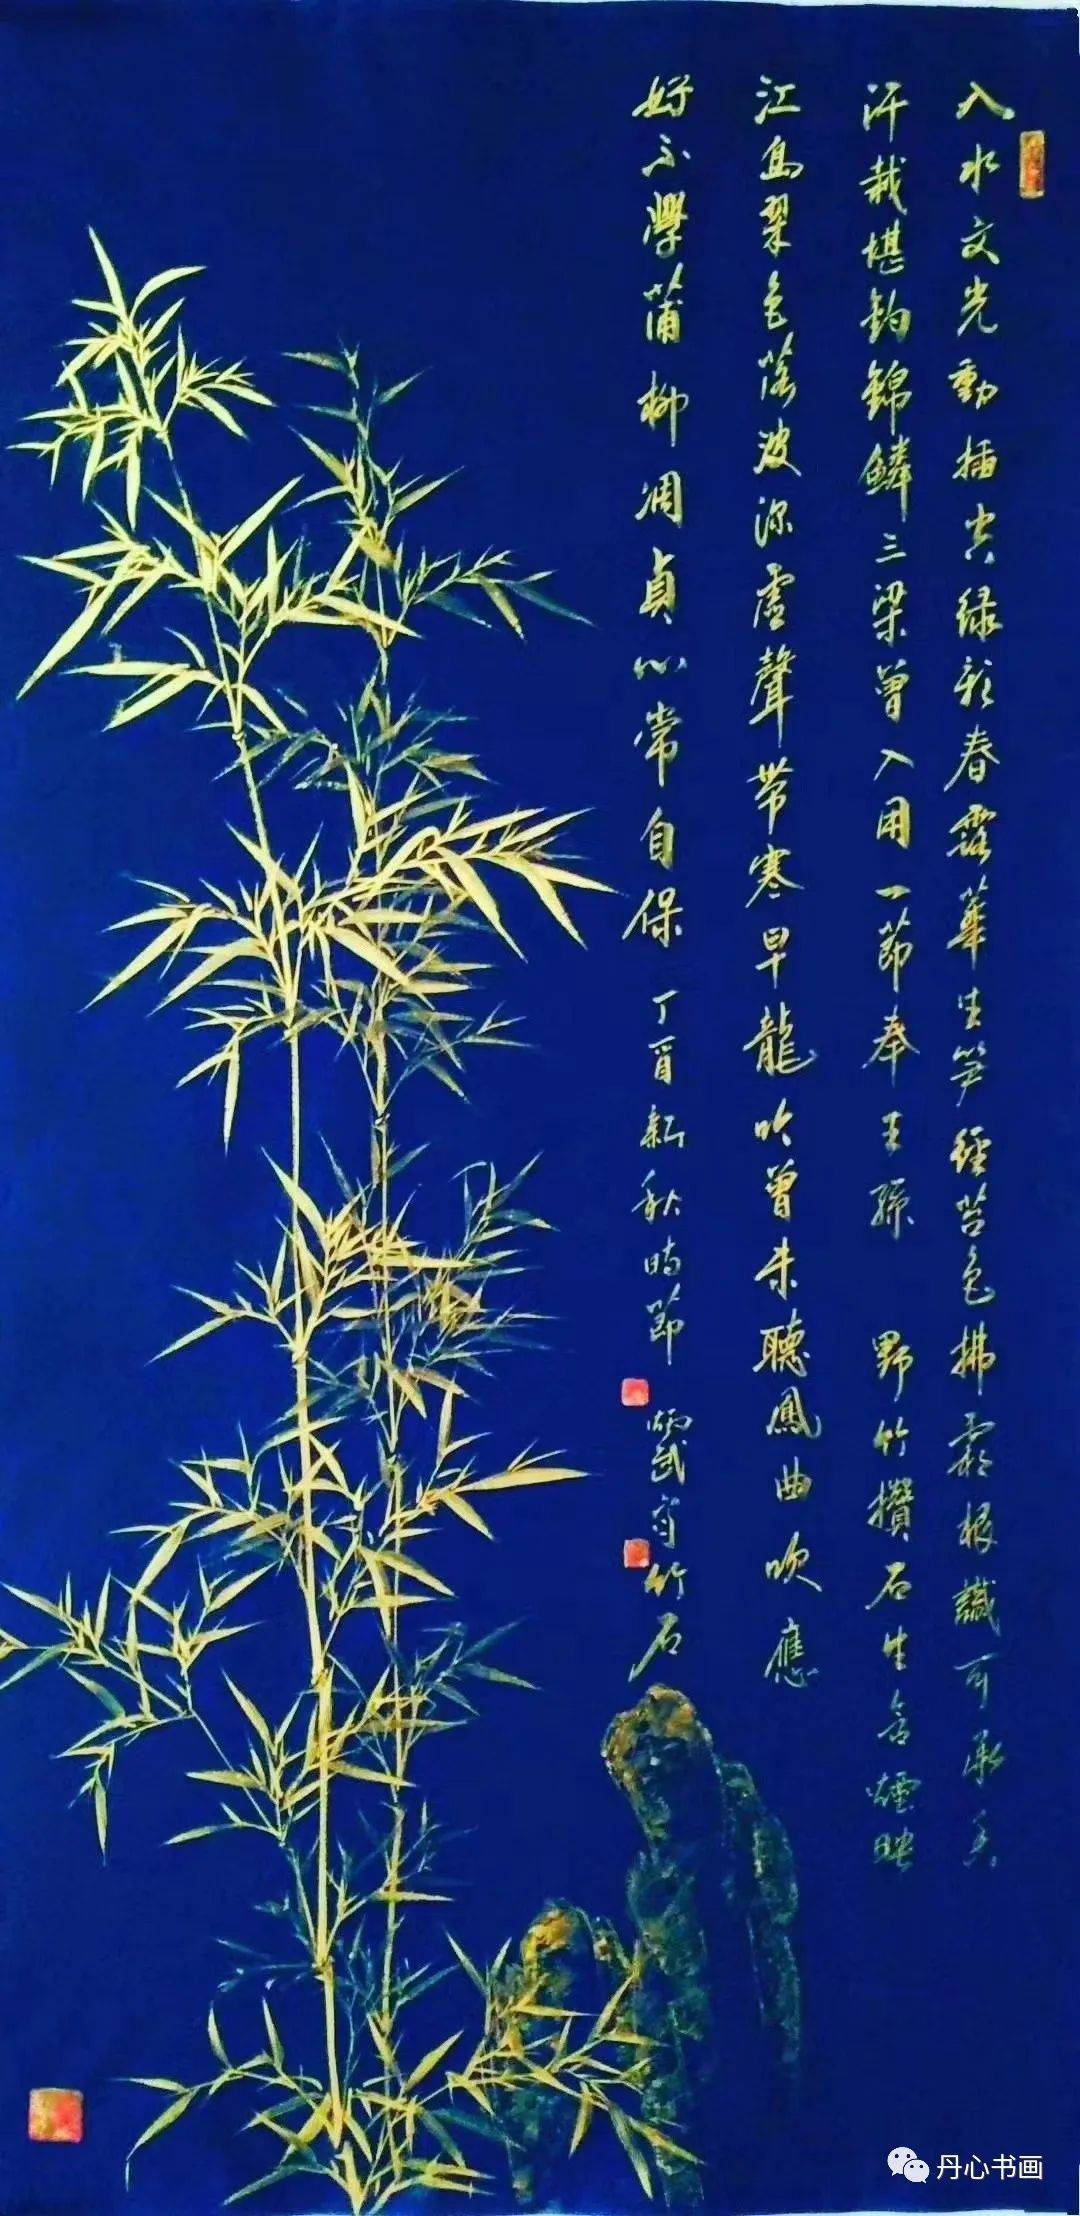 入水文光動插空綠影春露華生筍徑苔色拂霜根識可承香
汗栽堪釣錦鱗三梁曾入用一節奉王孫 野竹攢石生含煙映
江島翠色落波深虛聲帶寒早龍吟曾未聽鳳曲吹應
好不學蒲柳凋貞心常自保 丁酉新秋時節 炳武寫竹石
丹心书画